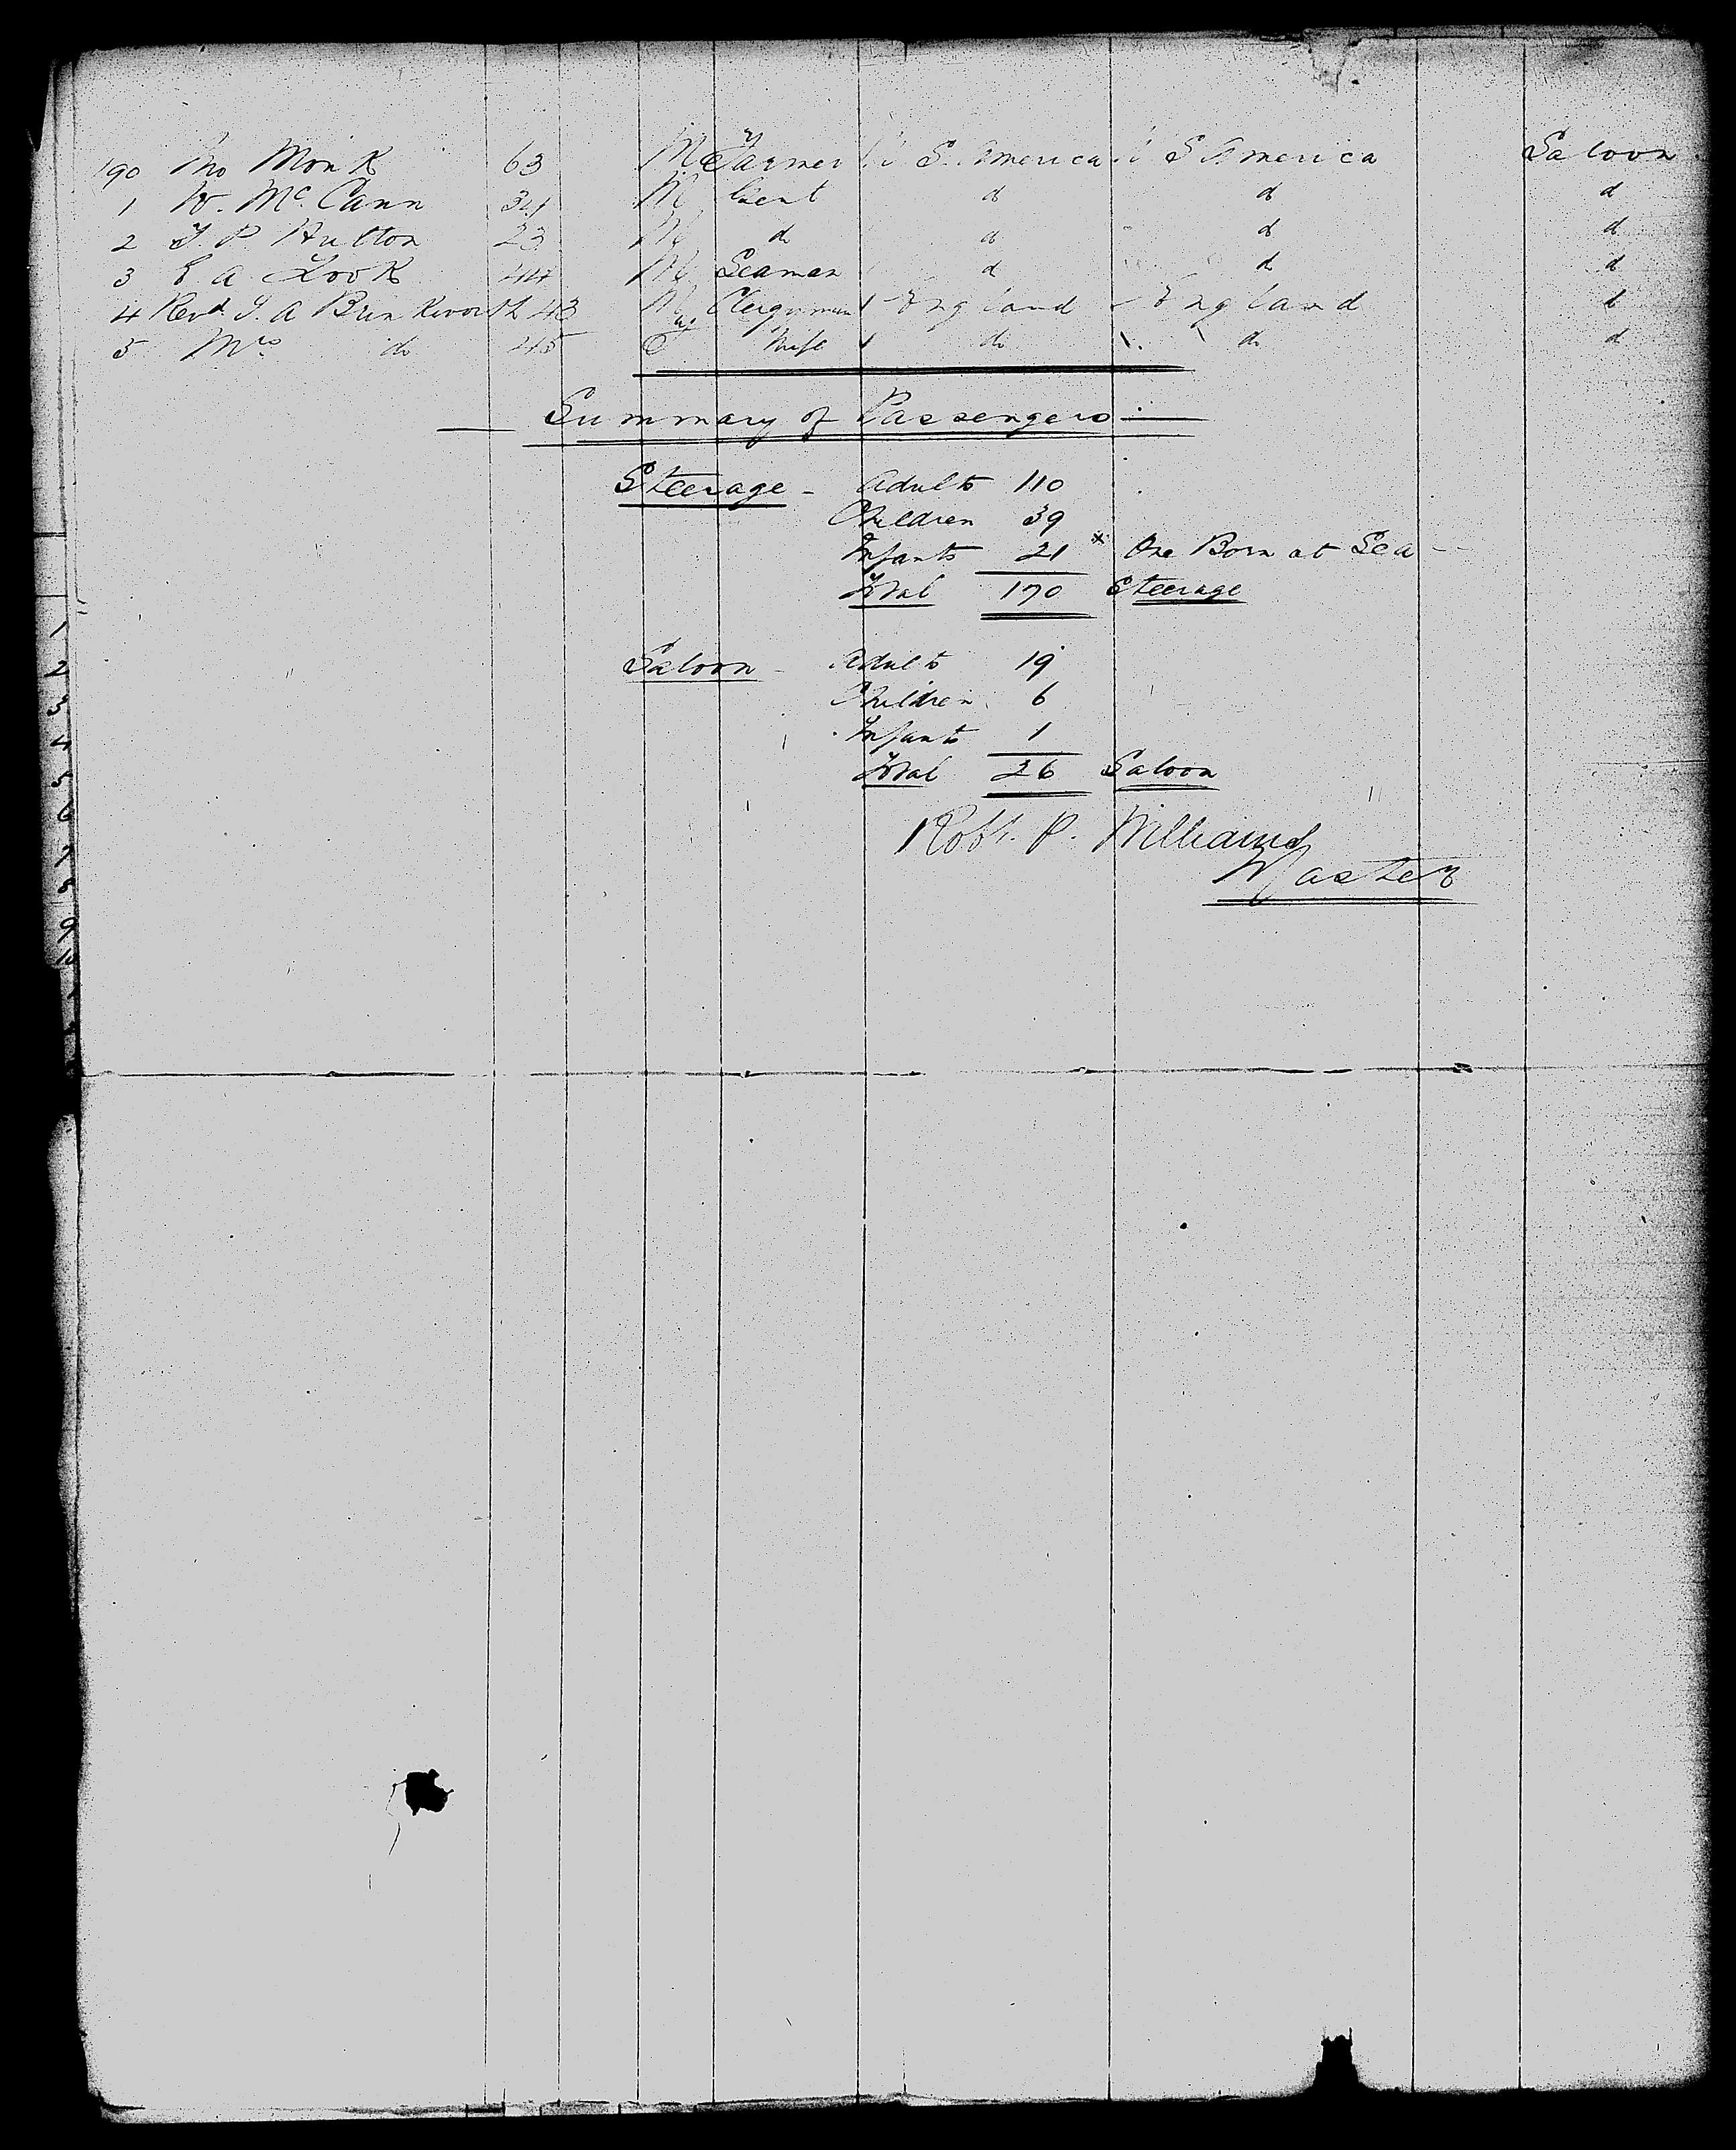 190 Tho Monk 63 M Farmer U S. America U S America Saloon
1 W. Mc Cann 34 M Gent do do do
2 T. P. Hutton 23 M do do do do
3 E A Look 44 M Seaman do do do
4 Revd T. A Brinkworth 43 M Clergyman England England do
5 Mrs do 45 Wife do do do
Summary of Passengers :
Steerage - Adults 110
Children 39
Infants 21 * One Born at Sea -
Total 170 Steerage
Saloon - Adults 19
Children 6
Infants 1
Total 26 Saloon
Robt. P. Williams
Master
1
2
3
4
5
6
7
8
9
10